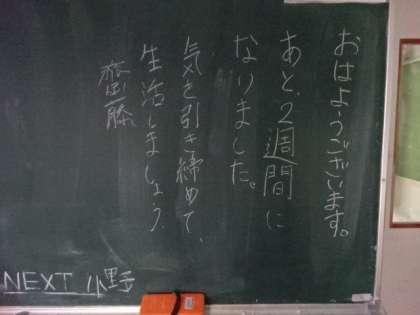 おはようございます。
あと、2週間に
なりました。
気を引き締めて、
生活しましょう。
齋藤
NEXT 小野